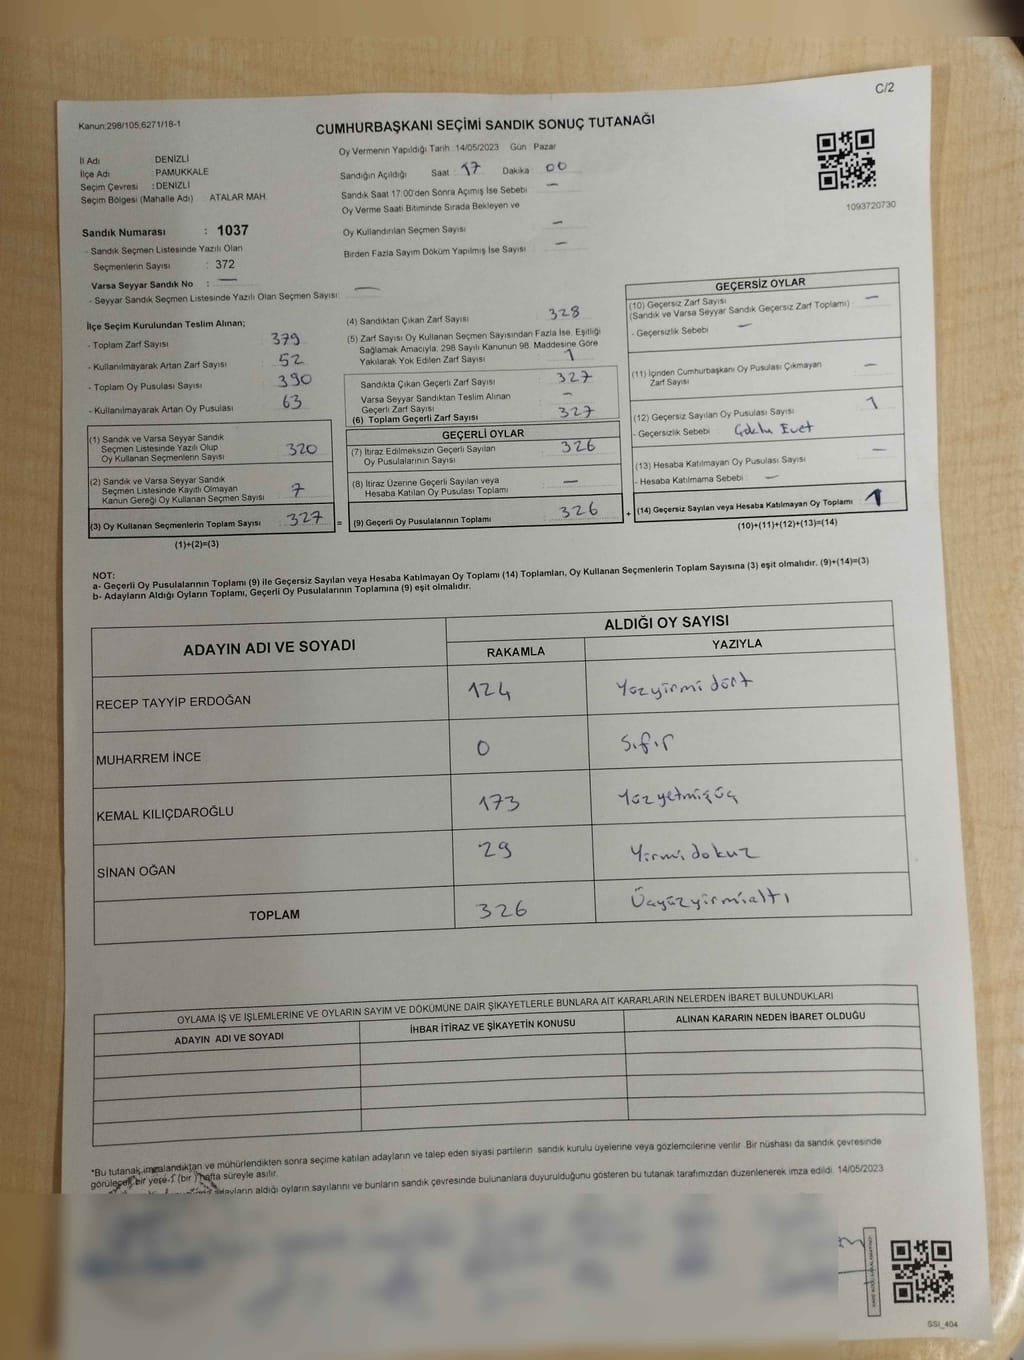 C/2
Kanun:298/105,6271/18-1
CUMHURBAŞKANI SEÇİMİ SANDIK SONUÇ TUTANAĞI
İl Adı DENİZLİ
İlçe Adı PAMUKKALE
Seçim Çevresi : DENİZLİ
Seçim Bölgesi (Mahalle Adı) ATALAR MAH.
Sandık Numarası : 1037
- Sandık Seçmen Listesinde Yazılı Olan
Seçmenlerin Sayısı : 372
Varsa Seyyar Sandık No : —
- Seyyar Sandık Seçmen Listesinde Yazılı Olan Seçmen Sayısı: —
Oy Vermenin Yapıldığı Tarih 14/05/2023 Gün Pazar
Sandığın Açıldığı Saat 17 Dakika 00
Sandık Saat 17:00'den Sonra Açılmış İse Sebebi —
Oy Verme Saati Bitiminde Sırada Bekleyen ve
Oy Kullandırılan Seçmen Sayısı —
Birden Fazla Sayım Döküm Yapılmış İse Sayısı —
1093720730
İlçe Seçim Kurulundan Teslim Alınan;
- Toplam Zarf Sayısı 379
- Kullanılmayarak Artan Zarf Sayısı 52
- Toplam Oy Pusulası Sayısı 390
- Kullanılmayarak Artan Oy Pusulası 63
(1) Sandık ve Varsa Seyyar Sandık
Seçmen Listesinde Yazılı Olup
Oy Kullanan Seçmenlerin Sayısı 320
(2) Sandık ve Varsa Seyyar Sandık
Seçmen Listesinde Kayıtlı Olmayan
Kanun Gereği Oy Kullanan Seçmen Sayısı 7
(3) Oy Kullanan Seçmenlerin Toplam Sayısı 327 =
(1)+(2)=(3)
(4) Sandıktan Çıkan Zarf Sayısı 328
(5) Zarf Sayısı Oy Kullanan Seçmen Sayısından Fazla İse, Eşitliği
Sağlamak Amacıyla, 298 Sayılı Kanunun 98. Maddesine Göre
Yakılarak Yok Edilen Zarf Sayısı 1
Sandıkta Çıkan Geçerli Zarf Sayısı 327
Varsa Seyyar Sandıktan Teslim Alınan
Geçerli Zarf Sayısı —
(6) Toplam Geçerli Zarf Sayısı 327
GEÇERLİ OYLAR
(7) İtiraz Edilmeksizin Geçerli Sayılan
Oy Pusulalarının Sayısı 326
(8) İtiraz Üzerine Geçerli Sayılan veya
Hesaba Katılan Oy Pusulası Toplamı —
(9) Geçerli Oy Pusulalarının Toplamı 326 +
GEÇERSİZ OYLAR
(10) Geçersiz Zarf Sayısı —
(Sandık ve Varsa Seyyar Sandık Geçersiz Zarf Toplamı)
- Geçersizlik Sebebi —
(11) İçinden Cumhurbaşkanı Oy Pusulası Çıkmayan
Zarf Sayısı —
(12) Geçersiz Sayılan Oy Pusulası Sayısı 1
- Geçersizlik Sebebi Çoklu Evet
(13) Hesaba Katılmayan Oy Pusulası Sayısı —
- Hesaba Katılmama Sebebi —
(14) Geçersiz Sayılan veya Hesaba Katılmayan Oy Toplamı 1
(10)+(11)+(12)+(13)=(14)
NOT:
a- Geçerli Oy Pusulalarının Toplamı (9) ile Geçersiz Sayılan veya Hesaba Katılmayan Oy Toplamı (14) Toplamları, Oy Kullanan Seçmenlerin Toplam Sayısına (3) eşit olmalıdır. (9)+(14)=(3)
b- Adayların Aldığı Oyların Toplamı, Geçerli Oy Pusulalarının Toplamına (9) eşit olmalıdır.
ADAYIN ADI VE SOYADI ALDIĞI OY SAYISI
RAKAMLA YAZIYLA
RECEP TAYYİP ERDOĞAN 124 Yüzyirmi dört
MUHARREM İNCE 0 Sıfır
KEMAL KILIÇDAROĞLU 173 Yüzyetmişüç
SİNAN OĞAN 29 Yirmi dokuz
TOPLAM 326 Üçyüzyirmialtı
OYLAMA İŞ VE İŞLEMLERİNE VE OYLARIN SAYIM VE DÖKÜMÜNE DAİR ŞİKAYETLERLE BUNLARA AİT KARARLARIN NELERDEN İBARET BULUNDUKLARI
ADAYIN ADI VE SOYADI İHBAR İTİRAZ VE ŞİKAYETİN KONUSU ALINAN KARARIN NEDEN İBARET OLDUĞU
*Bu tutanak imzalandıktan ve mühürlendikten sonra seçime katılan adayların ve talep eden siyasi partilerin sandık kurulu üyelerine veya gözlemcilerine verilir. Bir nüshası da sandık çevresinde
görülecek bir yere 1 (bir) hafta süreyle asılır.
adayların aldığı oyların sayılarını ve bunların sandık çevresinde bulunanlara duyurulduğunu gösteren bu tutanak tarafımızdan düzenlenerek imza edildi. 14/05/2023
SSI_404